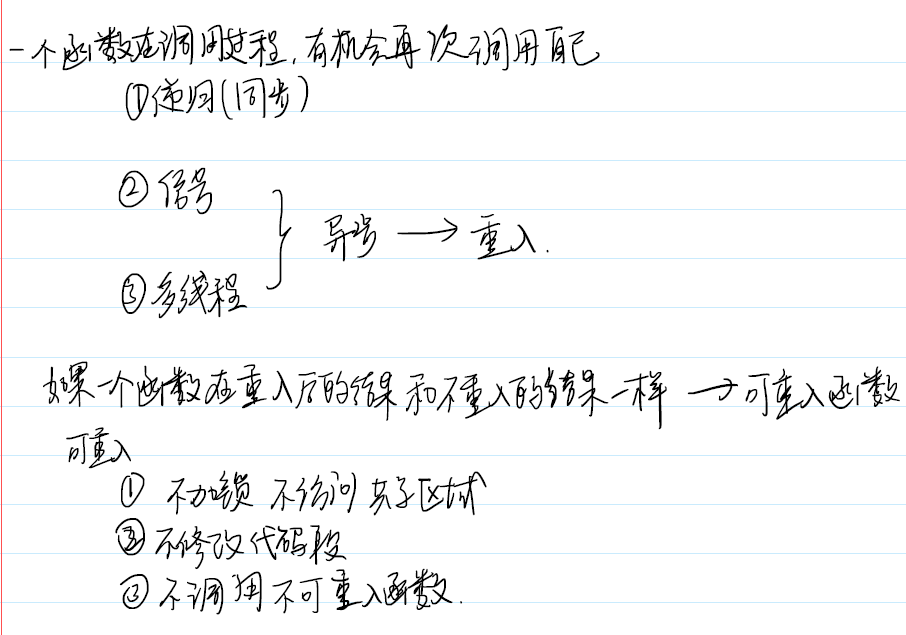 一个函数在调用过程,有机会再次调用自己
①递归(同步)
②信号
异步 → 重入.
③多线程
如果一个函数在重入后的结果和不重入的结果一样 → 可重入函数
可重入
① 不加锁 不访问共享区域
② 不修改代码段
③ 不调用不可重入函数.